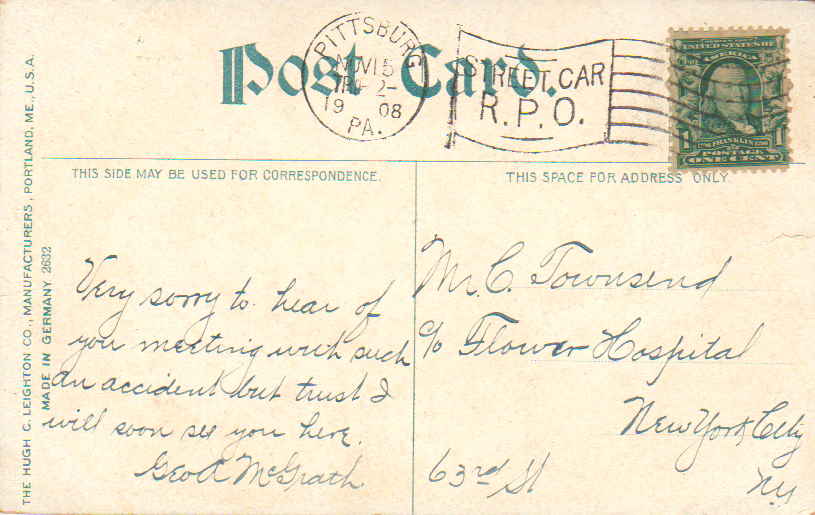 Post Card.
PITTSBURG
NOV 15
19 08
PA.
STREET. CAR
R.P.O.
UNITED STATES OF
AMERICA
FRANKLIN
POSTAGE
1 ONE CENT 1
THIS SIDE MAY BE USED FOR CORRESPONDENCE.
THIS SPACE FOR ADDRESS ONLY.
THE HUGH C. LEIGHTON CO., MANUFACTURERS, PORTLAND, ME., U.S.A.
MADE IN GERMANY 2632
Very sorry to hear of
you meeting with such
an accident but trust I
will soon see you here.
Geo A McGrath
Mr. C. Townsend
c/o Flower Hospital
New York City
63rd St
NY